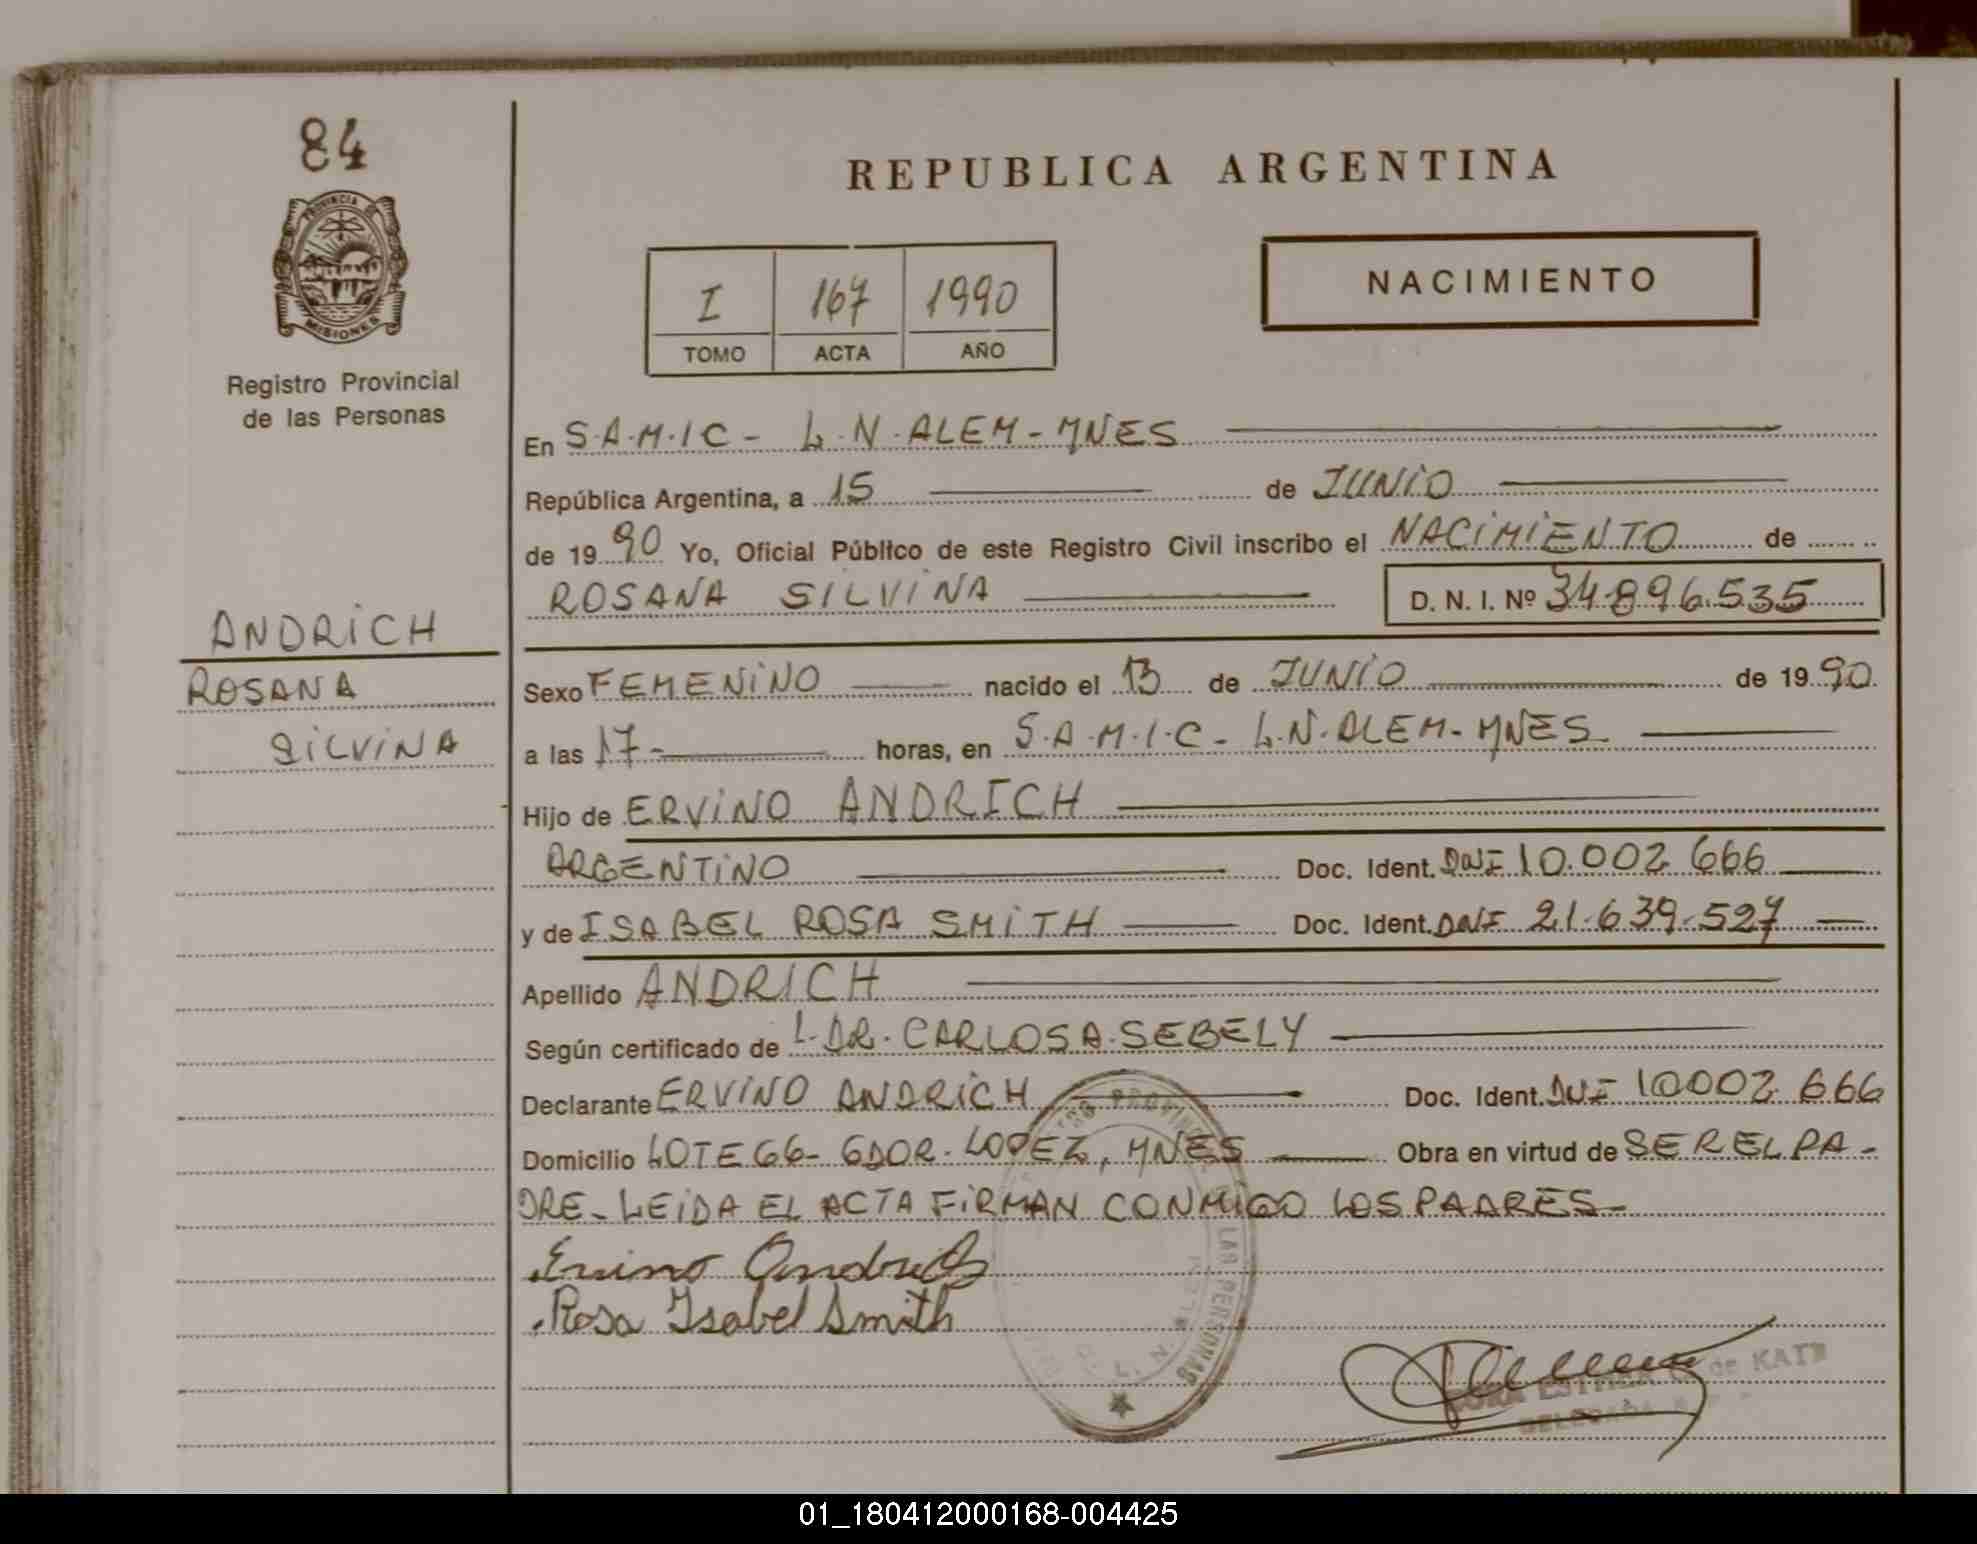 84
PROVINCIA DE
MISIONES
Registro Provincial
de las Personas
ANDRICH
ROSANA
SILVINA
REPUBLICA ARGENTINA
I 167 1990
TOMO ACTA AÑO
NACIMIENTO
En S.A.M.I.C - L.N. ALEM - MNES
República Argentina, a 15 de JUNIO
de 1990 Yo, Oficial Público de este Registro Civil inscribo el NACIMIENTO de
ROSANA SILVINA D. N. I. Nº 34.896.535
Sexo FEMENINO nacido el 13 de JUNIO de 1990
a las 17 - horas, en S.A.M.I.C - L.N. ALEM - MNES
Hijo de ERVINO ANDRICH
ARGENTINO Doc. Ident. DNI 10.002.666
y de ISABEL ROSA SMITH Doc. Ident. DNI 21.639.527
Apellido ANDRICH
Según certificado de L. DR. CARLOS A. SEBELY
Declarante ERVINO ANDRICH Doc. Ident. DNI 10002.666
Domicilio LOTE 66 - GDOR. LOPEZ, MNES Obra en virtud de SER EL PA -
DRE - LEIDA EL ACTA FIRMAN CONMIGO LOS PADRES -
Ervino Andrich
Rosa Isabel Smith
PROVIN
LAS PERSONAS
L. N. ALEM
ESTHER de KATZ
DELEGADA
01_180412000168-004425